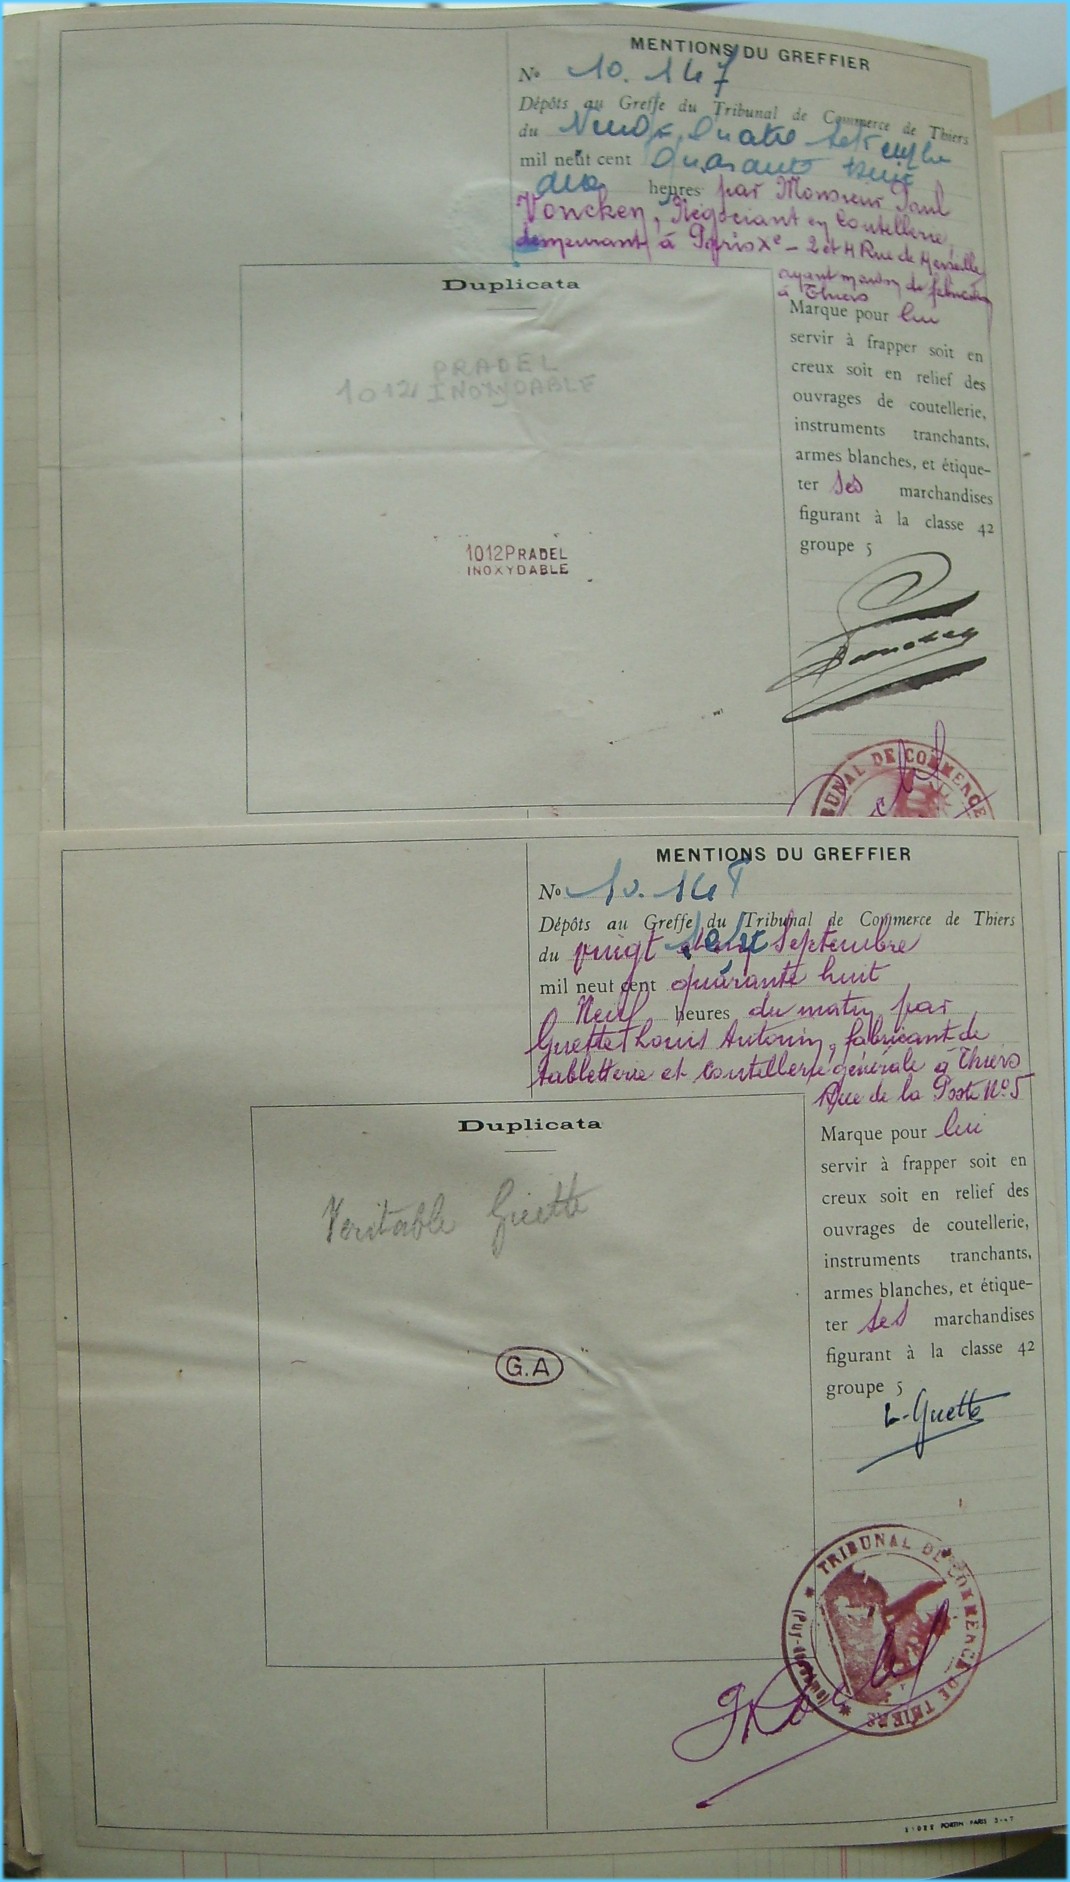 MENTIONS DU GREFFIER
No 10.147
Dépôts au Greffe du Tribunal de Commerce de Thiers
du Septembre
mil neuf cent Quarante huit
heures par Monsieur Paul
Voncken, Négociant en Coutellerie,
demeurant à Paris Xe - 2 et 4 Rue de Marseille
ayant maison de fabrication
à Thiers
Duplicata
Marque pour lui
servir à frapper soit en
creux soit en relief des
ouvrages de coutellerie,
instruments tranchants,
armes blanches, et étique-
ter ses marchandises
figurant à la classe 42
groupe 5
PRADEL
1012 INOXYDABLE
1012 PRADEL
INOXYDABLE
TRIBUNAL DE COMMERCE
MENTIONS DU GREFFIER
No 10.148
Dépôts au Greffe du Tribunal de Commerce de Thiers
du vingt sept Septembre
mil neuf cent quarante huit
Neuf heures du matin par
Guette Louis Antonin, fabricant de
tabletterie et coutellerie générale à Thiers
Rue de la Poste No 5
Duplicata
Marque pour lui
servir à frapper soit en
creux soit en relief des
ouvrages de coutellerie,
instruments tranchants,
armes blanches, et étique-
ter ses marchandises
figurant à la classe 42
groupe 5
Veritable Guette
G.A
L. Guette
TRIBUNAL DE COMMERCE DE THIERS
(Puy-de-Dôme)